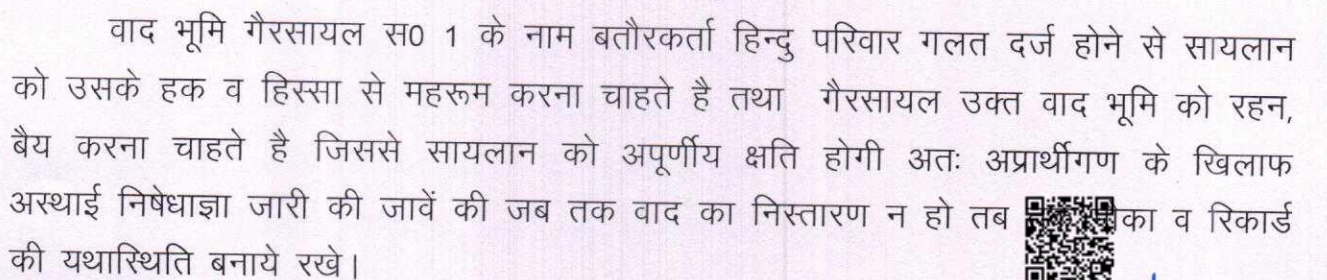 वाद भूमि गैरसायल स0 1 के नाम बतौरकर्ता हिन्दु परिवार गलत दर्ज होने से सायलान
को उसके हक व हिस्सा से महरूम करना चाहते है तथा गैरसायल उक्त वाद भूमि को रहन,
बैय करना चाहते है जिससे सायलान को अपूर्णीय क्षति होगी अतः अप्रार्थीगण के खिलाफ
अस्थाई निषेधाज्ञा जारी की जावें की जब तक वाद का निस्तारण न हो तब व रिकार्ड
की यथास्थिति बनाये रखे।